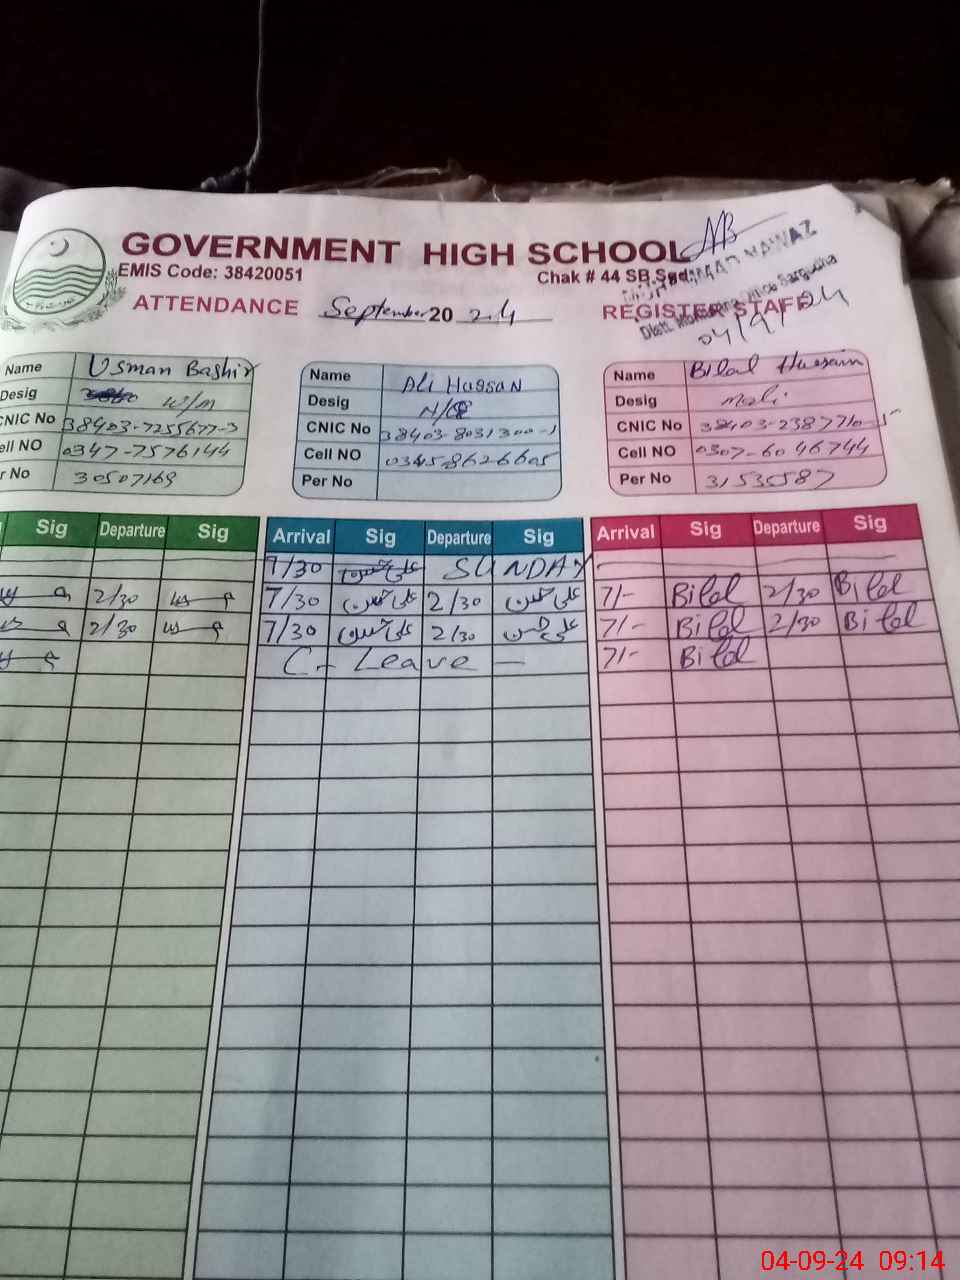 GOVERNMENT HIGH SCHOOL
EMIS Code: 38420051
Chak # 44 SB Sgd.
MUHAMMAD NAWAZ
Distt. Monitoring Office Sargodha
04/9/24
ATTENDANCE September 20 24 REGISTER STAFF
Name Usman Bashir
Desig W/M
CNIC No 38403-7255677-3
Cell NO 0347-7576144
Per No 30507169
Name Ali Hassan
Desig
CNIC No 38403-8031300-1
Cell NO 03458626605
Per No
Name Bilal Hussain
Desig mali
CNIC No 38403-2387710-5
Cell NO 0307-6046744
Per No 31530587
Sig Departure Sig Arrival Sig Departure Sig Arrival Sig Departure Sig
7/30 علی حسن SUNDAY
2/30 7/30 علی حسن 2/30 علی حسن 7/- Bilal 2/30 Bilal
2/30 7/30 علی حسن 2/30 علی حسن 7/- Bilal 2/30 Bilal
C - Leave — 7/- Bilal
04-09-24 09:14